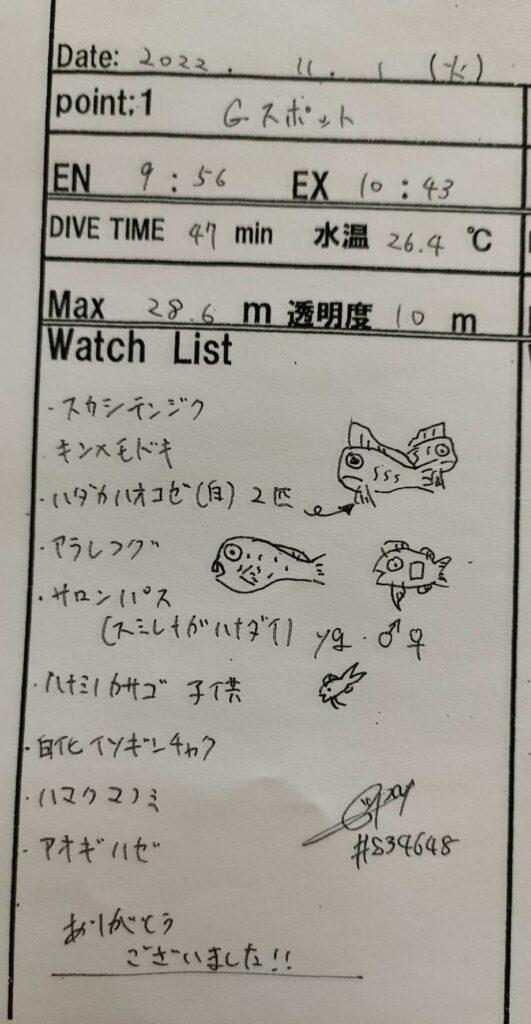 Date: 2022. 11. 1 (火)
point:1 Gスポット
EN 9:56 EX 10:43
DIVE TIME 47 min 水温 26.4 ℃
Max 28.6 m 透明度 10 m
Watch List
・スカシテンジク
キンメモドキ
・ハダカハオコゼ(白) 2匹
・アラレフグ
・サロンパス
(スミレナガハナダイ) yg ・♂♀
・ハナミノカサゴ 子供
・白化イソギンチャク
・ハマクマノミ
・アオギハゼ
#S34648
ありがとう
ございました!!